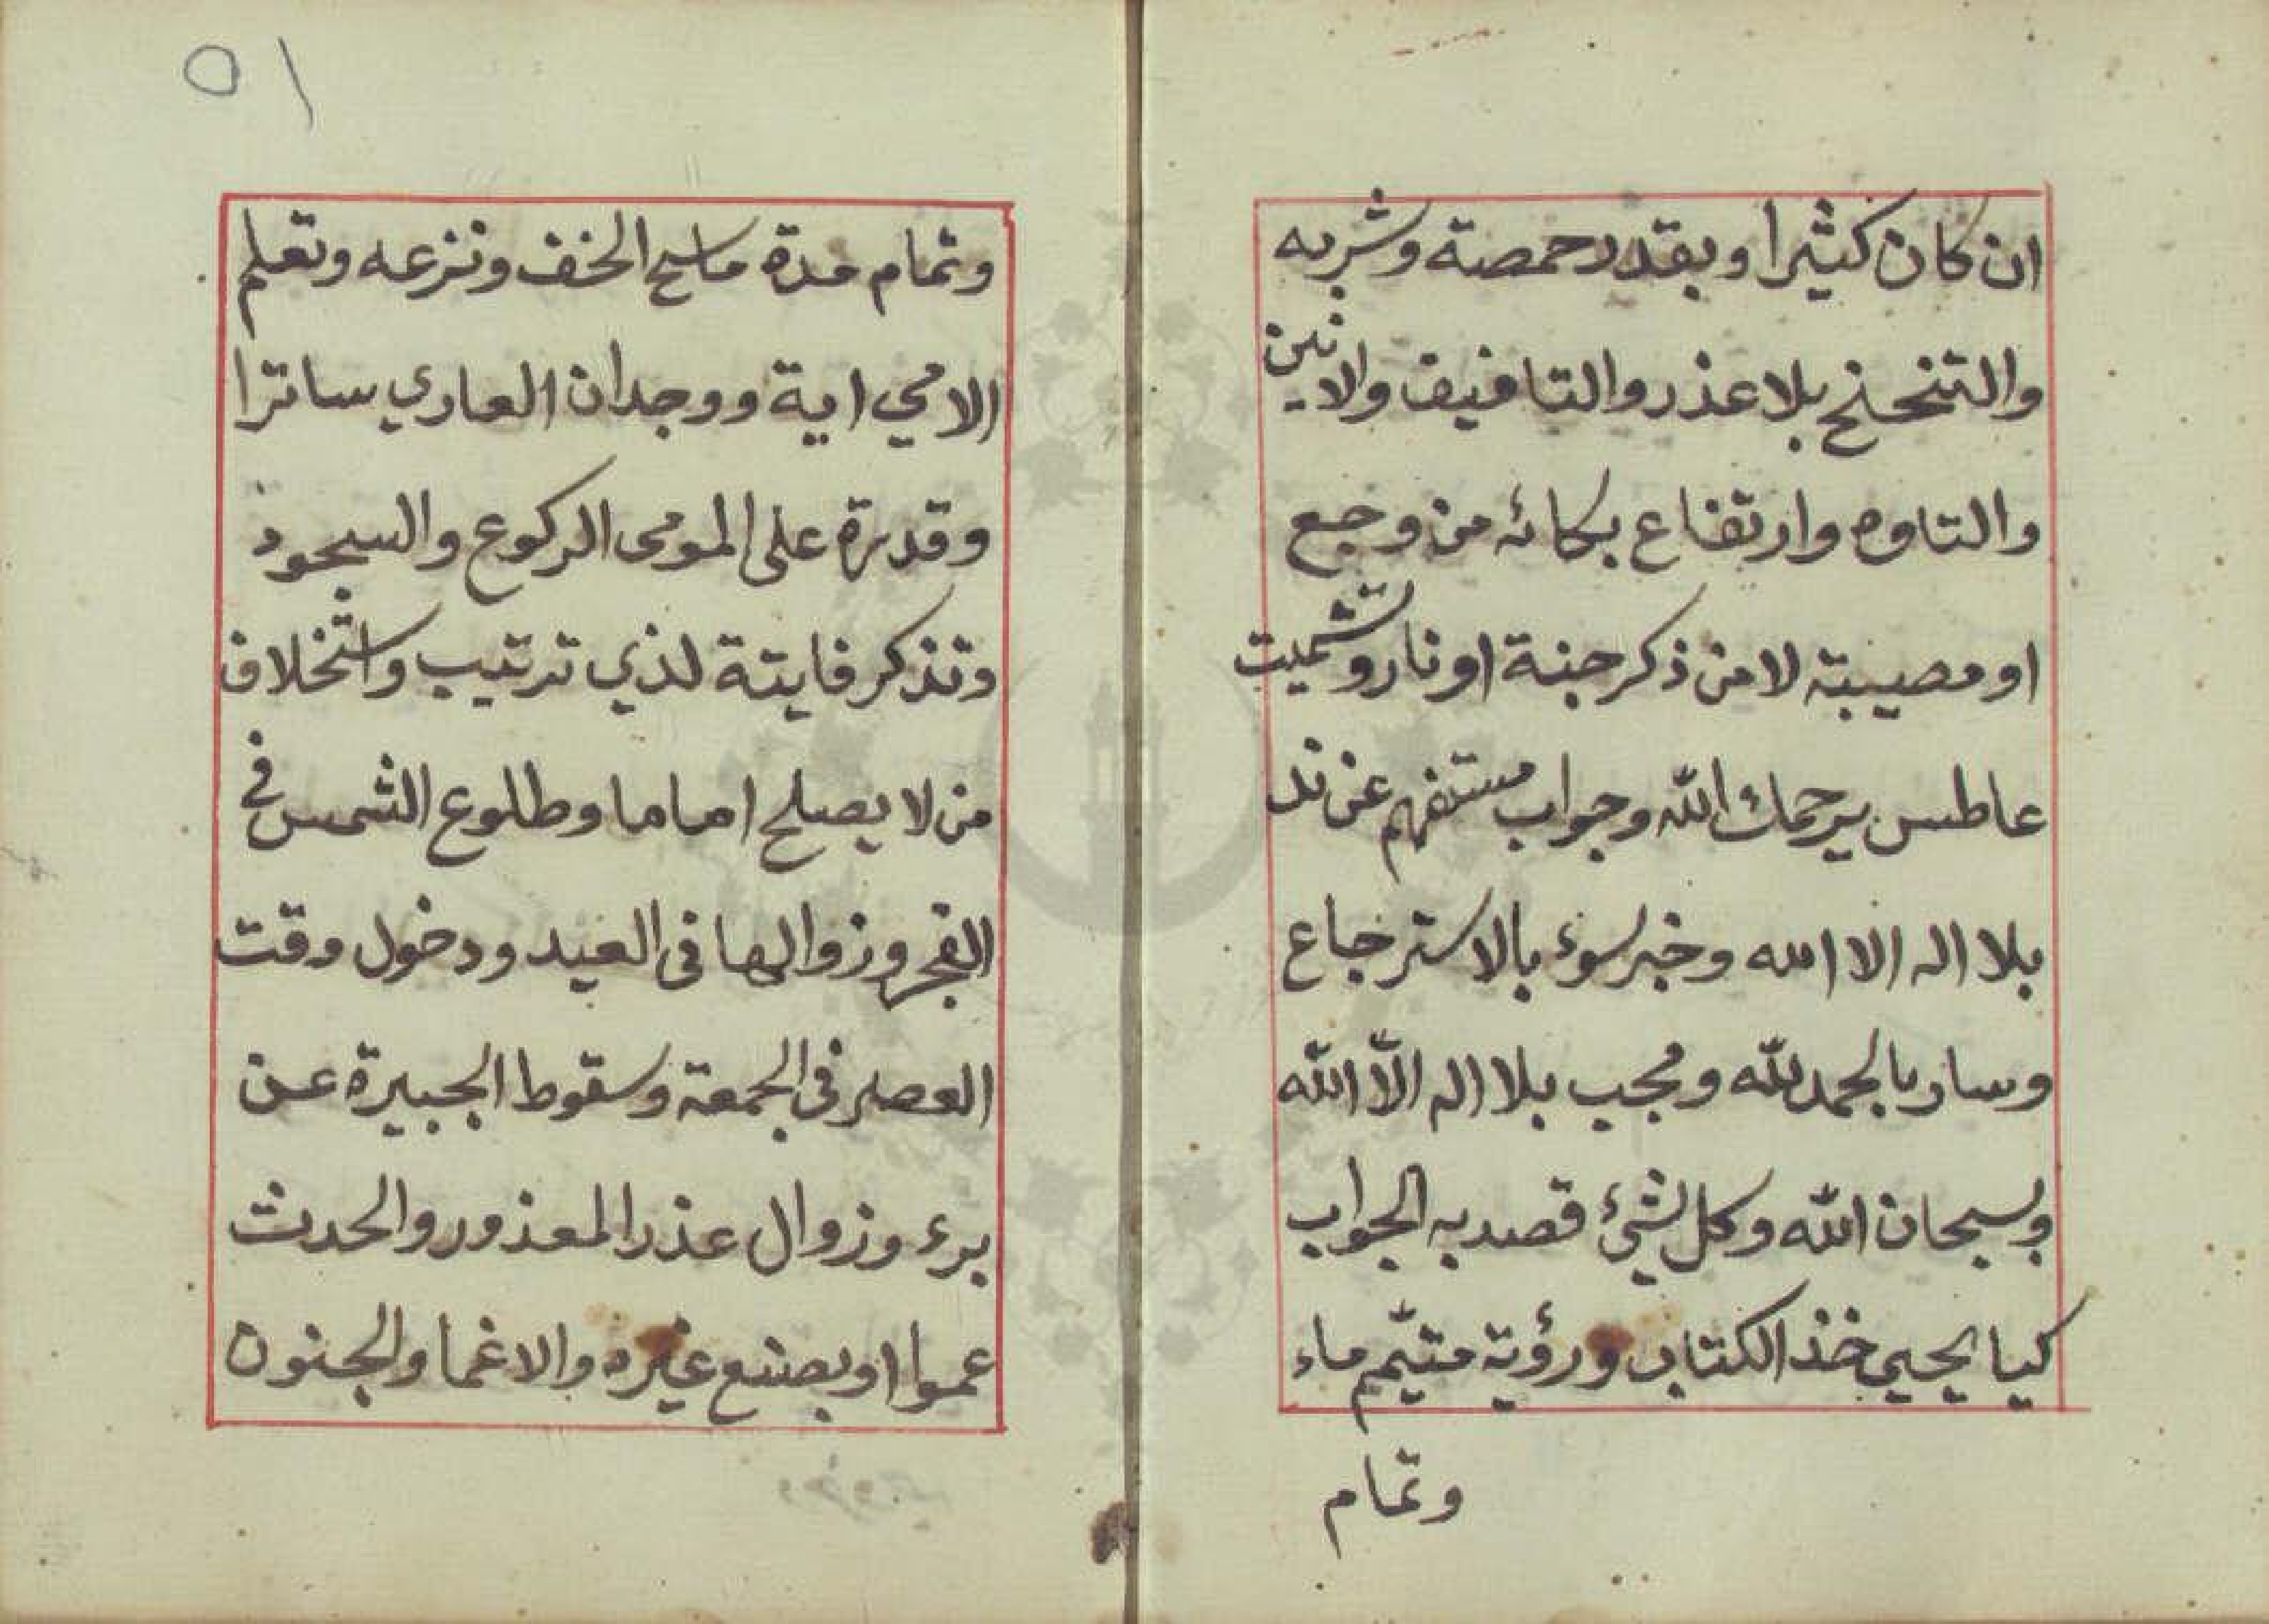 ان كان كثيرا وبقدر حمصة وشربه
والتنحنح بلا عذر والتافيف والانين
والتاوه وارتفاع بكائه من وجع
او مصيبة لا من ذكر جنة او نار وتشميت
عاطس يرحمك الله وجواب مستفهم عن ند
بلا اله الا الله وخبر سوء بالاسترجاع
وسار بالحمد لله ومجب بلا اله الّا اللّه
وبسبحان اللّه وكل شئ قصد به الجواب
كيا يحيى خذ الكتاب ورؤية متيمّم ماء
وتمام
٥١
وتمام مدة ماسح الخف ونزعه وتعلم
الامي اية ووجدان العاري ساترا
وقدرة على المومى الركوع والسجود
وتذكر فايتة لذي ترتيب واستخلاف
من لا يصلح اماما وطلوع الشمس في
الفجر وزوالها فى العيد ودخول وقت
العصر فى الجمعة وسقوط الجبيرة عن
برء وزوال عذر المعذور والحدث
عموا او بصنع غيره والاغما والجنون